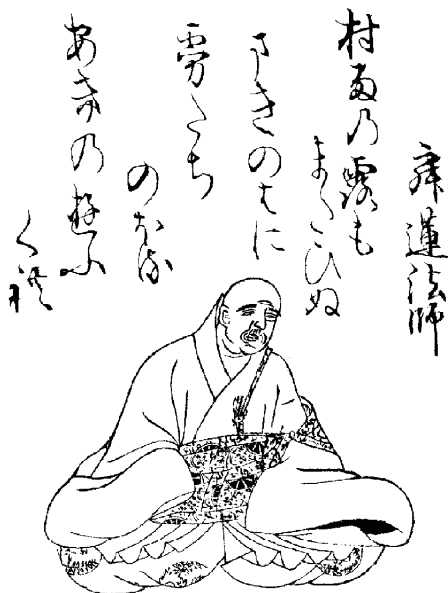 寂蓮法師
村雨乃露も
またひぬ
まきのはに
霧たち
のほる
あき乃ゆふ
くれ